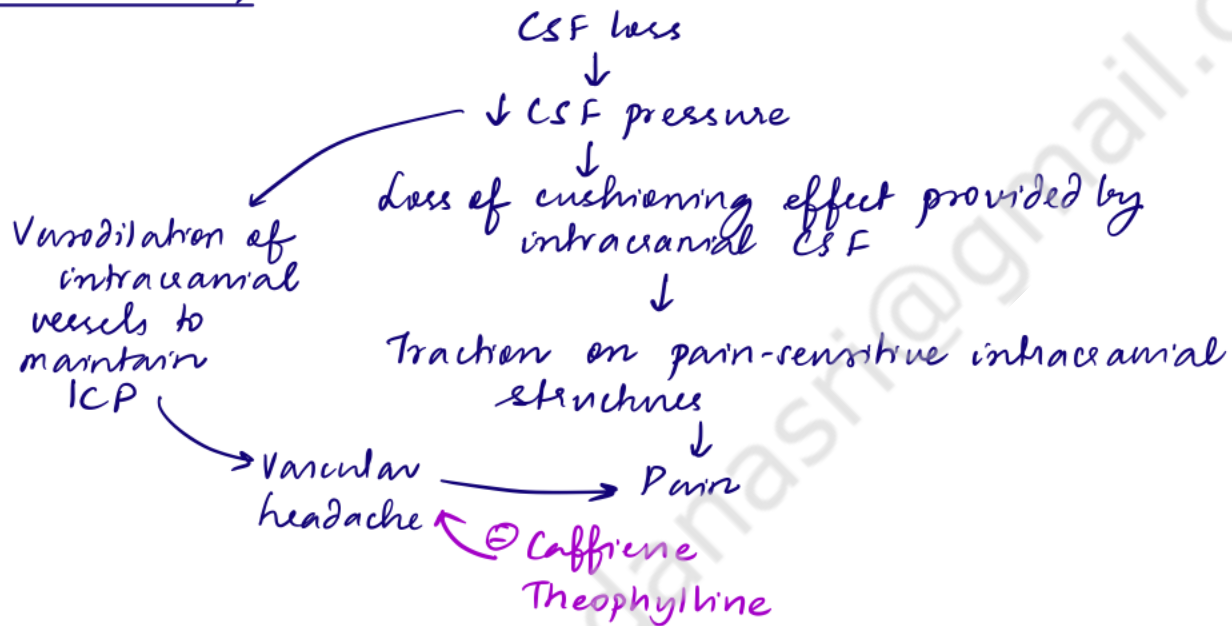 CSF loss
↓
↓ CSF pressure
↓
Loss of cushioning effect provided by
intracranial CSF
↓
Traction on pain-sensitive intracranial
structures
↓
Pain
Vasodilation of
intracranial
vessels to
maintain
ICP
Vascular
headache
⊖ Caffiene
Theophylline
danasri@gmail.c